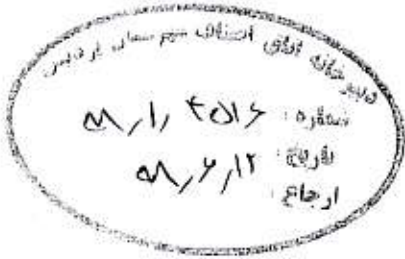 دبیرخانه اتاق اصناف شهرستان پردیس
شماره: ۹۸/۱/۴۵۱۶
تاریخ: ۹۸/۶/۱۲
ارجاع: